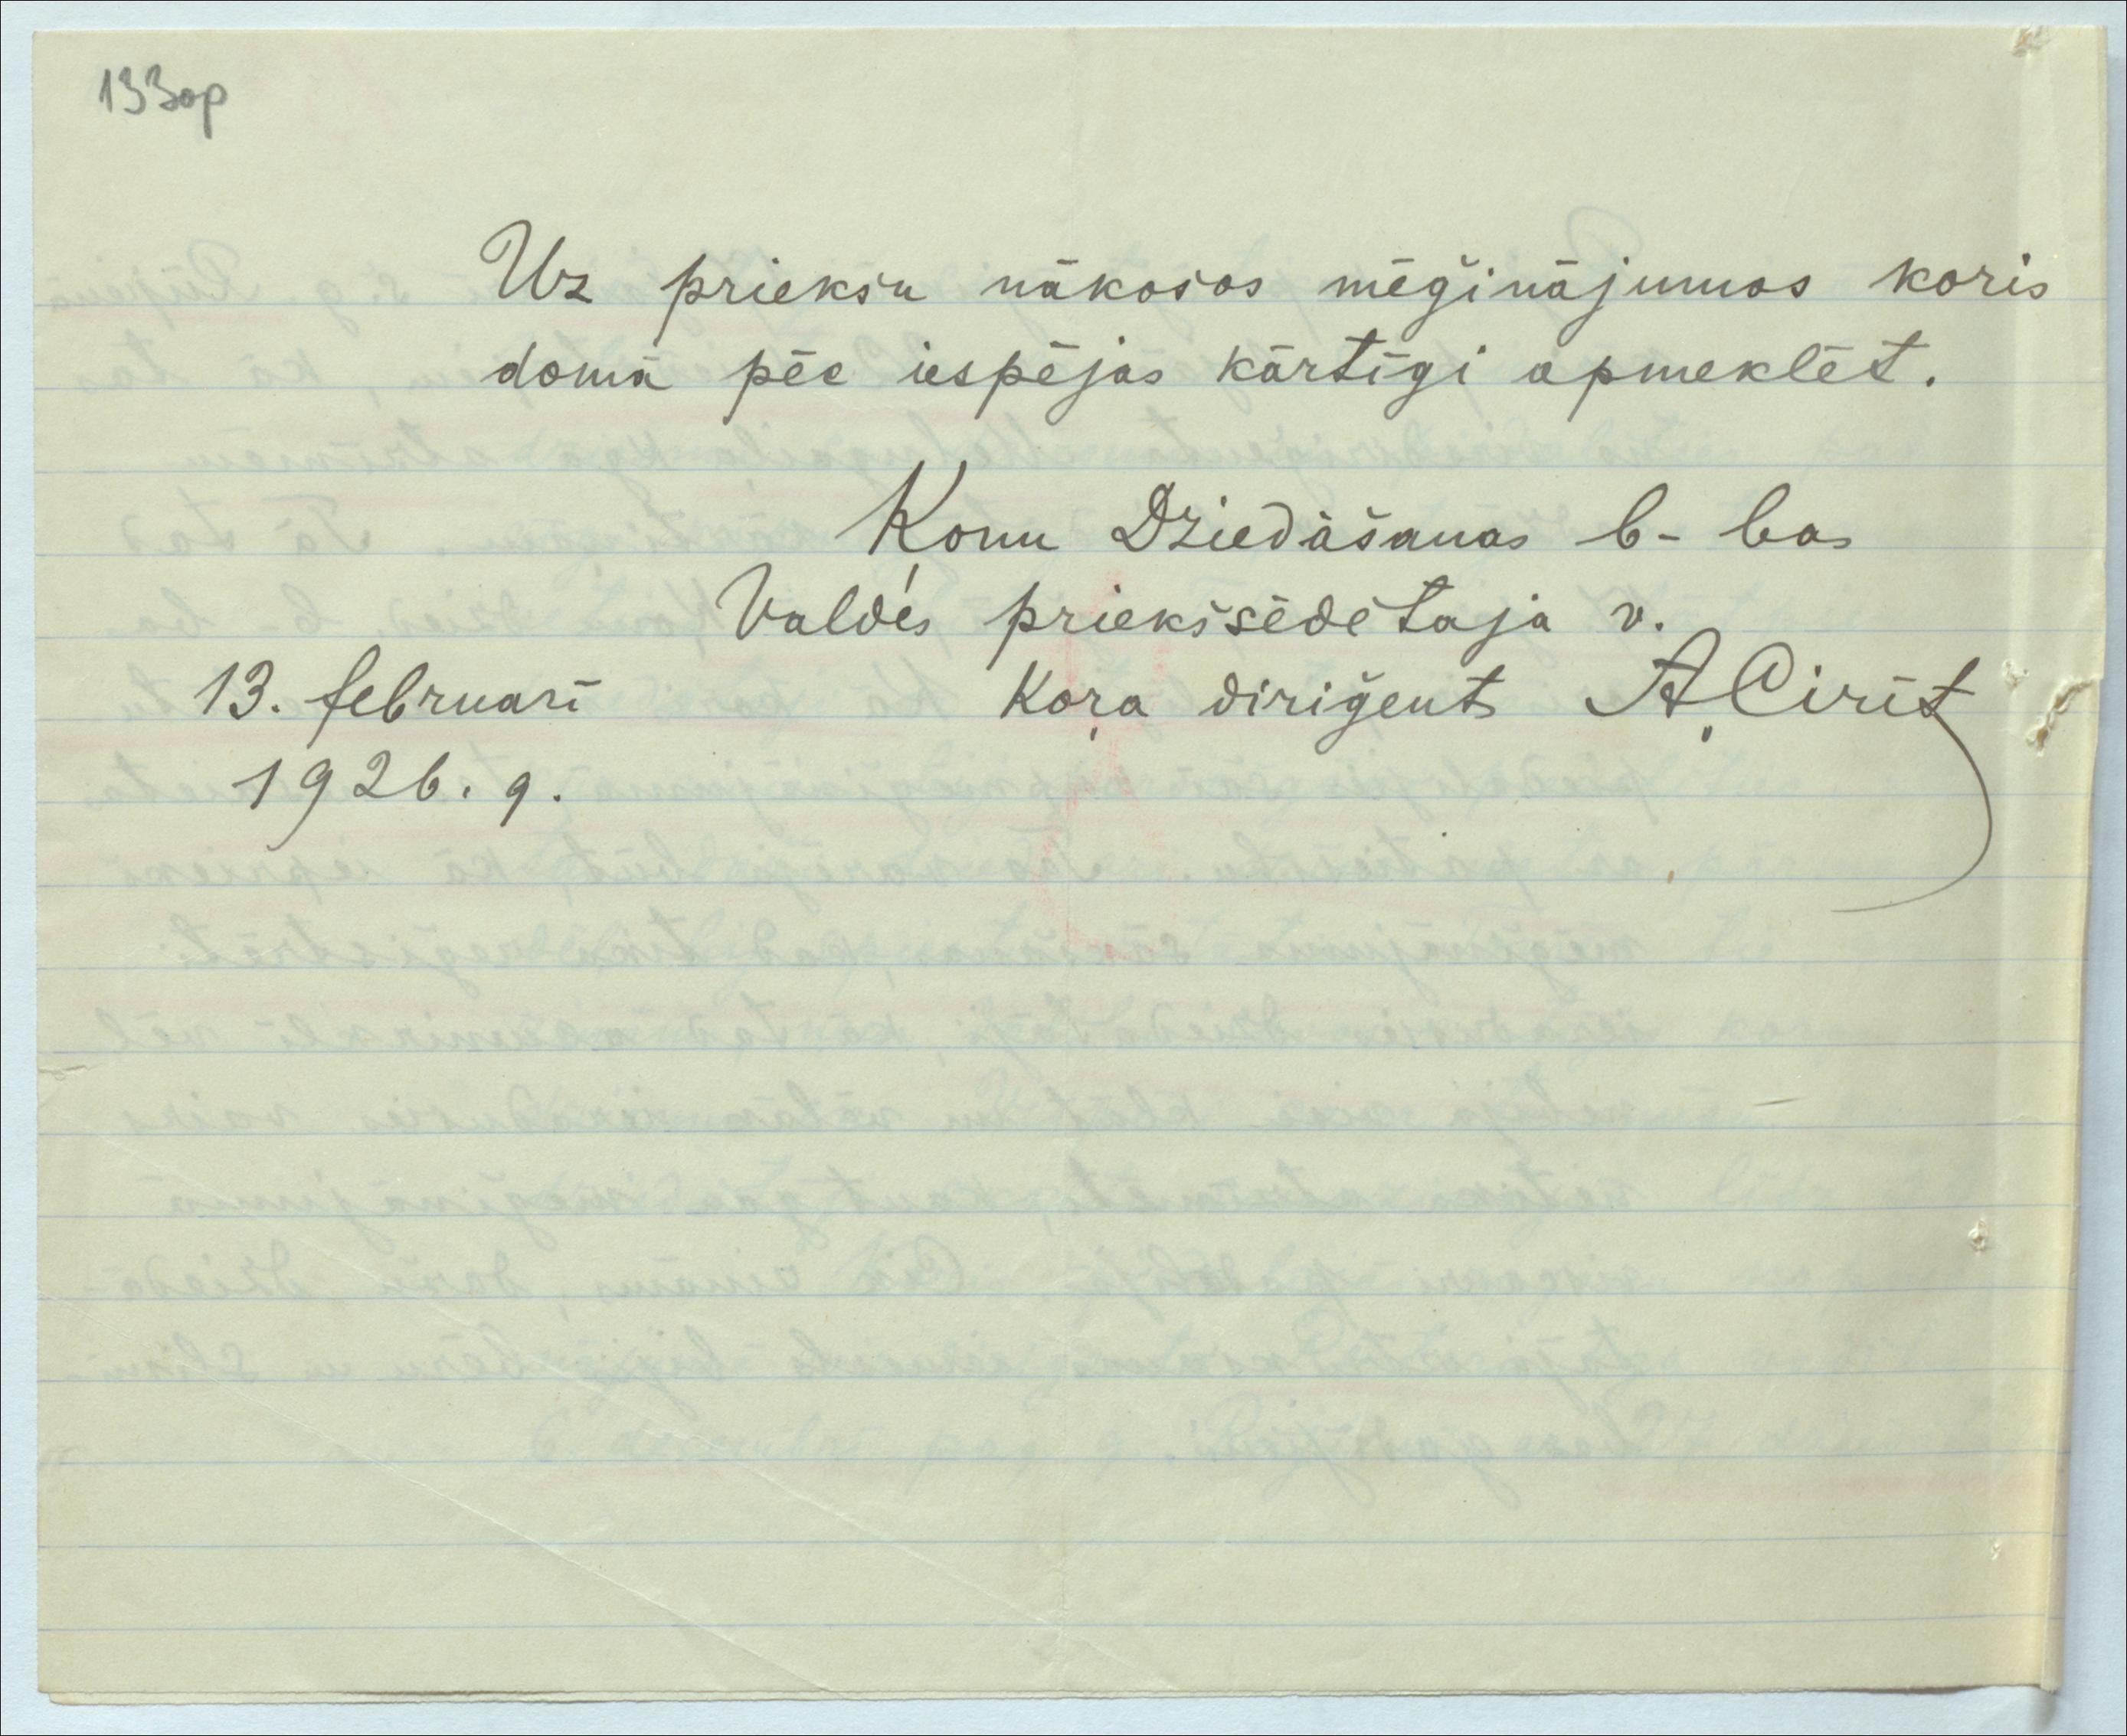 133op
Uz priekšu nākošos mēģinājumos koris
domā pēc iespējas kārtīgi apmeklēt.
Ķoņu Dziedāšanas b-bas
Valdes priekšsēdētaja v.
13. februarī Koŗa diriģents A. Cirīt
1926. g.